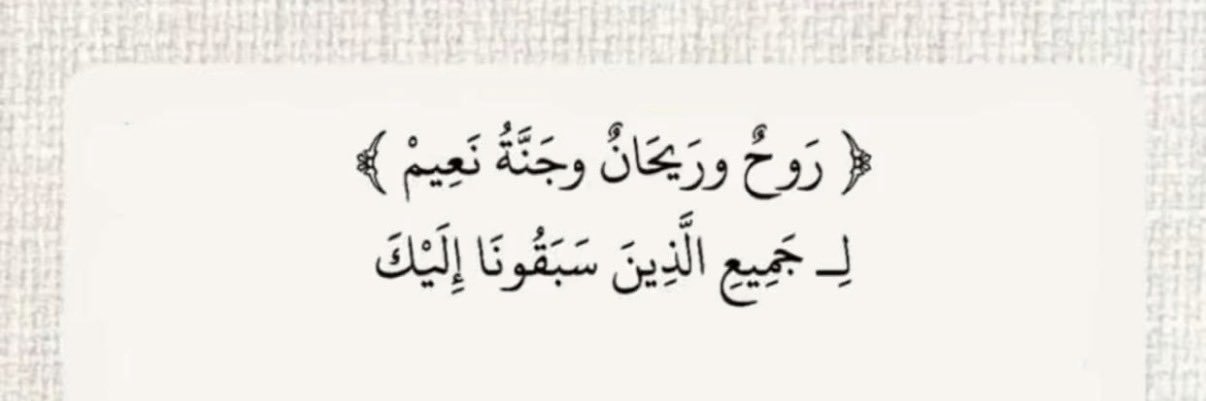 ﴿ رَوحٌ ورَيحَانٌ وجَنَّةُ نَعِيمْ ﴾
لِـ جَمِيعِ الَّذِينَ سَبَقُونَا إِلَيْكَ